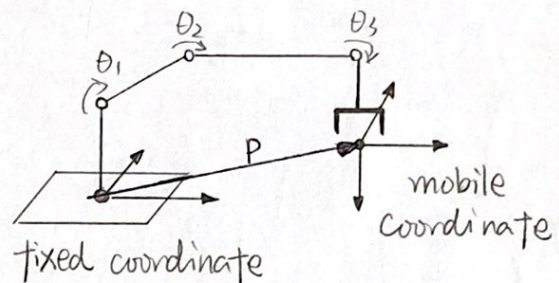 θ1
θ2
θ3
P
mobile
coordinate
fixed coordinate